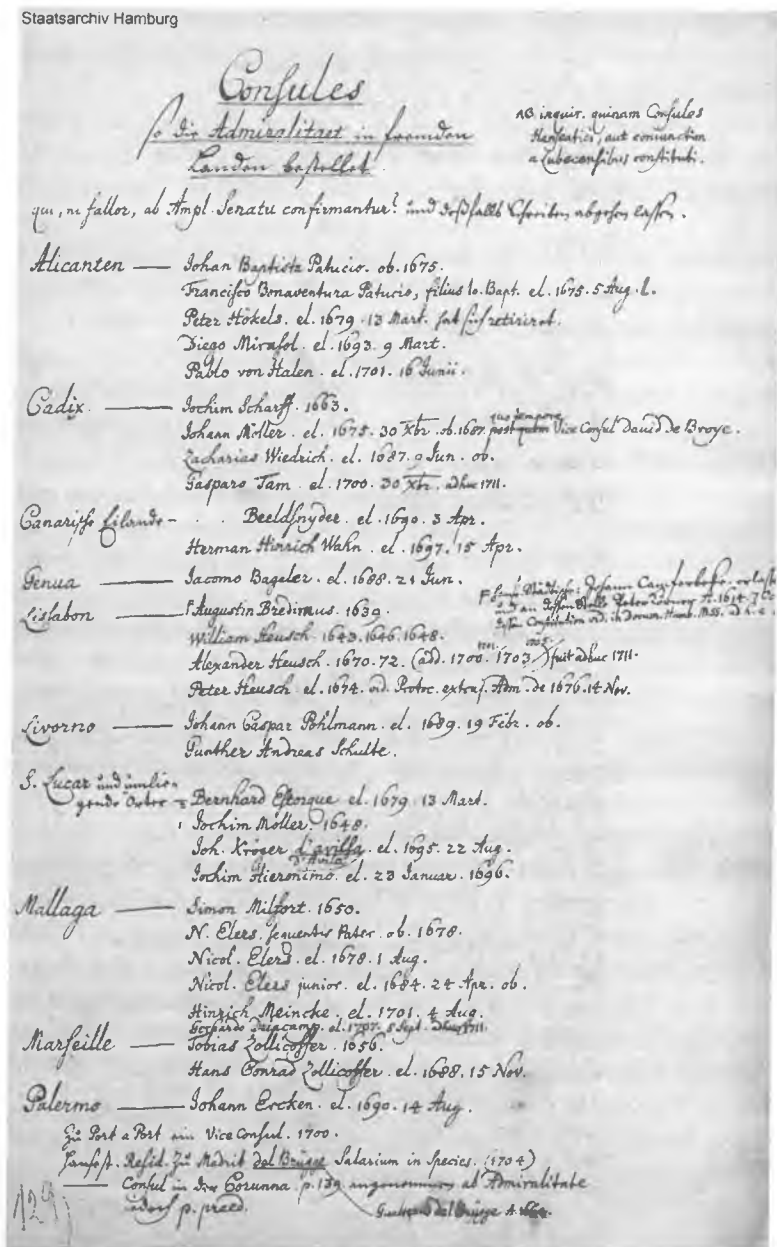 Staatsarchiv Hamburg
Consules
so die Admiralitaet in fremden
Landen bestellet.
NB. inquir. quinam Consules
Hanseatici, aut conjunctim
a Lubecensibus constituti.
qui, ni fallor, ab Ampl. Senatu confirmantur? und deßfalls Schreiben abgehen lassen.
Alicanten — Johan Baptista Patucio. ob. 1675.
Francisco Bonaventura Patucio, filius Io. Bapt. el. 1675. 5 Aug.
Peter Hökels. el. 1679. 13 Mart. hat sich retiriret.
Diego Mirasol. el. 1693. 9 Mart.
Pablo von Halen. el. 1701. 16 Junii.
Cadix — Jochim Scharff. 1663.
Johann Möller. el. 1675. 30 Xbr. ob. 1687. Vice Consul David De Broye.
Zacharias Wiedrich. el. 1687. 9 Jun. ob.
Gasparo Tam. el. 1700. 30 Xbr. adhuc 1711.
Canarische Eilande - . . Beeldsnyder. el. 1690. 3 Apr.
Herman Hinrich Wahn. el. 1697. 15 Apr.
Genua — Iacomo Bageler. el. 1688. 21 Jun.
Johann
A. 1614. 7
Lissabon — Augustin Bredimus. 1639.
William Heusch. 1643. 1646. 1648.
Alexander Heusch. 1670. 72. (add. 1700. 1703) fuit adhuc 1711.
Peter Heusch. el. 1674. vid. Protoc. extraj. Adm. de 1676. 14 Nov.
Livorno — Johann Caspar Pohlmann. el. 1689. 19 Febr. ob.
Gunther Andreas Schulte.
S. Lucar und umlie-
gende Örter - Bernhard el. 1679. 13 Mart.
Jochim Möller. 1648.
Joh. Kröger d'avilsa. el. 1695. 22 Aug.
d'Avila
Jochim Hieronimo. el. 23 Januar. 1696.
Mallaga — Simon Milfort. 1650.
N. Elers, sequentis Pater. ob. 1678.
Nicol. Elers. el. 1678. 1 Aug.
Nicol. Elers junior. el. 1684. 24 Apr. ob.
Hinrich Meincke. el. 1701. 4 Aug.
el. 1707. 5 Sept. adhuc 1711.
Marseille — Tobias Zollicoffer. 1656.
Hans Conrad Zollicoffer. el. 1688. 15 Nov.
Palermo — Johann Ercken. el. 1690. 14 Aug.
Zu Port a Port ein Vice Consul. 1700.
Resid. zu Madrit del Brügge Salarium in Species. (1704)
— Consul in der Corunna. p. 139 angenommen ab Admiralitate
p. praed.
del Brügge A.
129